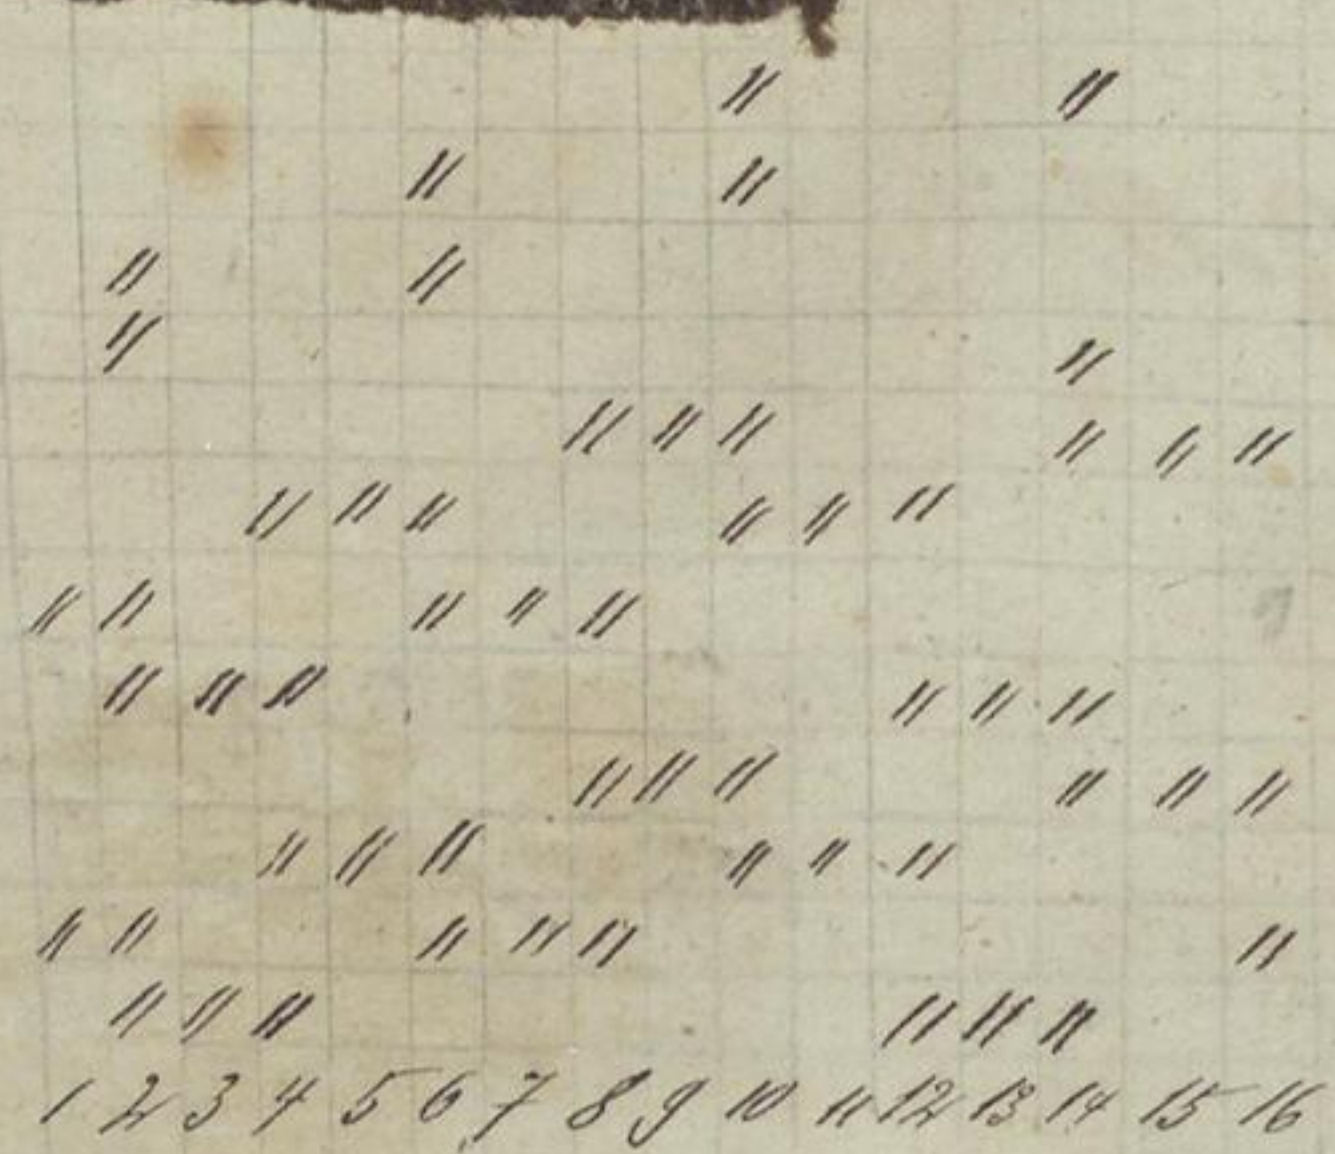 〃 〃
〃 〃
〃 〃
〃
〃
〃 〃 〃 〃 〃 〃
〃 〃 〃 〃 〃 〃
〃 〃 〃 〃 〃
〃 〃 〃 〃 〃 〃
〃 〃 〃 〃 〃 〃
〃 〃 〃 〃 〃 〃
〃 〃 〃 〃 〃 〃
〃 〃 〃 〃 〃 〃
1 2 3 4 5 6 7 8 9 10 11 12 13 14 15 16